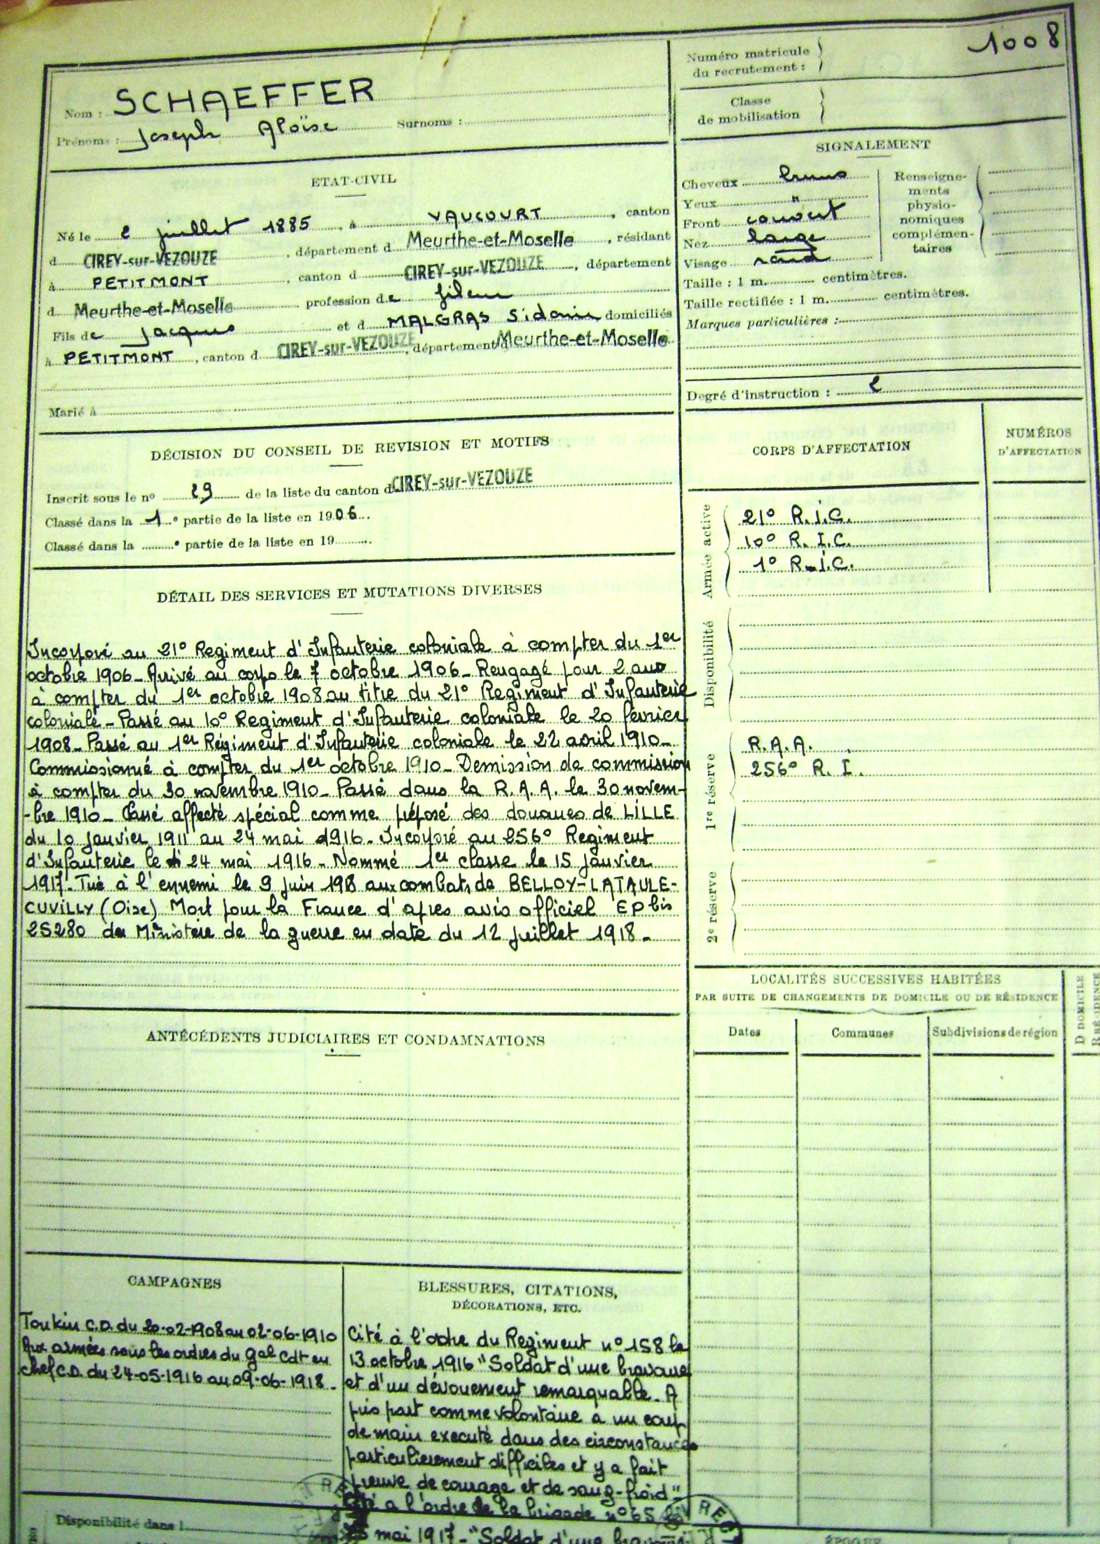 Numéro matricule
du recrutement :
1008
Classe
de mobilisation
Nom : SCHAEFFER
Prénoms : Joseph Aloïse Surnoms :
ETAT-CIVIL
Né le 2 juillet 1885, à VAUCOURT, canton
d CIREY-sur-VEZOUZE, département d Meurthe-et-Moselle, résidant
à PETITMONT, canton d CIREY-sur-VEZOUZE, département
d Meurthe-et-Moselle profession de fileur
Fils de Jacques et d MALGRAS Sidonie domiciliés
à PETITMONT, canton d CIREY-sur-VEZOUZE, département d Meurthe-et-Moselle
Marié à
SIGNALEMENT
Cheveux bruns
Yeux "
Front couvert
Nez large
Visage rond
Renseigne-
ments
physio-
nomiques
complémen-
taires
Taille : 1 m. centimètres.
Taille rectifiée : 1 m. centimètres.
Marques particulières :
Degré d'instruction : 2
DÉCISION DU CONSEIL DE REVISION ET MOTIFS
Inscrit sous le nº 29 de la liste du canton d CIREY-sur-VEZOUZE
Classé dans la 1e partie de la liste en 1906.
Classé dans la e partie de la liste en 19
DÉTAIL DES SERVICES ET MUTATIONS DIVERSES
Incorporé au 21º Regiment d'Infanterie coloniale à compter du 1er
octobre 1906 - Arrivé au corps le 7 octobre 1906 - Rengagé pour 2 ans
à compter du 1er octobre 1908 au titre du 21º Regiment d'Infanterie
coloniale - Passé au 10º Regiment d'Infanterie coloniale le 20 fevrier
1908 - Passé au 1er Régiment d'Infanterie coloniale le 22 avril 1910 -
Commissionné à compter du 1er octobre 1910 - Demission de commission
à compter du 30 novembre 1910 - Passé dans la R.A.A. le 30 novem-
-bre 1910 - Passé affecté spécial comme préposé des douanes de LILLE
du 10 janvier 1911 au 24 mai 1916 - Incorporé au 256º Regiment
d'Infanterie le 24 mai 1916 - Nommé 1er classe le 15 janvier
1917 - Tué à l'ennemi le 9 juin 198 aux combats de BELLOY-LATAULE-
CUVILLY (Oise) Mort pour la France d'apres avis officiel EP bis
25280 du Ministère de la guerre en date du 12 juillet 1918 -
CORPS D'AFFECTATION
NUMÉROS
D'AFFECTATION
Armée active
21º R.I.C.
10º R.I.C.
1º R.I.C.
Disponibilité
1re réserve
R.A.A.
256º R.I.
2e réserve
LOCALITÉS SUCCESSIVES HABITÉES
PAR SUITE DE CHANGEMENTS DE DOMICILE OU DE RÉSIDENCE
Dates
Communes
Subdivisions de région
D DOMICILE
R RÉSIDENCE
ANTÉCÉDENTS JUDICIAIRES ET CONDAMNATIONS
CAMPAGNES
Tonkin C.D. du 20-02-1908 au 02-06-1910
Aux armées sous les ordres du gal Cdt en
chef C.D. du 24-05-1916 au 09-06-1918 -
BLESSURES, CITATIONS,
DÉCORATIONS, ETC.
Cité à l'odre du Regiment nº 158 le
13 octobre 1916 "Soldat d'une bravoure
et d'un dévouement remarquable. A
pris part comme volontaire a un coup
de main executé dans des circonstances
particulierement difficiles et y a fait
preuve de courage et de sang-froid"-
Cité a l'ordre de la brigade nº 65 le
25 mai 1917 - "Soldat d'une bravoure
Disponibilité dans l